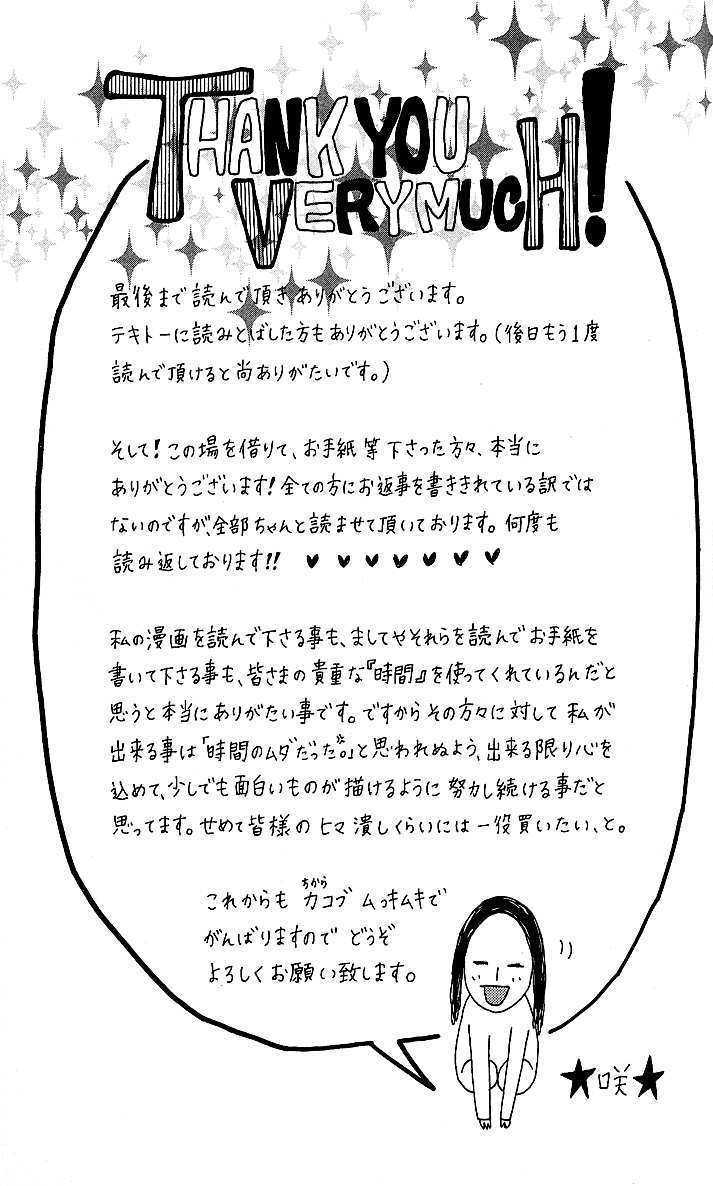 THANK YOU
VERY MUCH!
最後まで読んで頂きありがとうございます。
テキトーに読みとばした方もありがとうございます。(後日もう1度
読んで頂けると尚ありがたいです。)
そして!この場を借りて、お手紙等下さった方々、本当に
ありがとうございます!全ての方にお返事を書ききれている訳では
ないのですが、全部ちゃんと読ませて頂いております。何度も
読み返しております!! ♥ ♥ ♥ ♥ ♥ ♥ ♥
私の漫画を読んで下さる事も、ましてやそれらを読んでお手紙を
書いて下さる事も、皆さまの貴重な『時間』を使ってくれているんだと
思うと本当にありがたい事です。ですからその方々に対して私が
出来る事は「時間のムダだった。」と思われぬよう、出来る限り心を
込めて、少しでも面白いものが描けるように努力し続ける事だと
思ってます。せめて皆様のヒマ潰しくらいには一役買いたい、と。
これからも力コブムッキムキで
ちから
がんばりますのでどうぞ
よろしくお願い致します。
★咲★